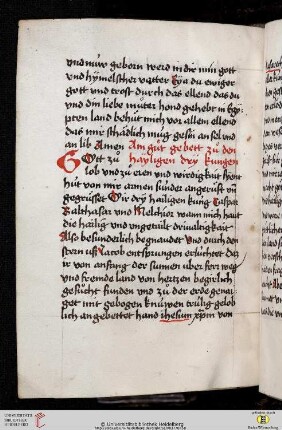 vnd nüw geborn werd in dir min gott
vnd hÿmelscher vatter Eya du ewiger
gott vnd trost durch das ellend das du
vnd din liebe müter hond gehebt in Egÿ
pten land behüt mich vor allem ellend
das mir schädlich müg gesin an sel vnd
an lib Amen Ain güt gebett zü den
Gott zü haÿligen drÿ kungen
lob vnd zü eren vnd wirdigkait sÿent
hüt von mir armen sünder angerüft vñ
gegrüsset Ir drÿ hailigen küng Caspar
Balthasar vnd Melchior wann mich haut
die hailig vnd vngetailt drÿualtigkait
Also besunderlich begnaudet vnd durch den
stern vß Jacob entsprungen erlüchtet das
ir von anfang der sunnen uber ferr weg
vnd fremde land von hertzen begirlich
gesücht funden vnd zü der erde genai
get mit gebogen knüwen trülich gelob
lich angebettet hand ihesum xp̄m von
UNIVERSITÄTS-
BIBLIOTHEK
HEIDELBERG
© Universitätsbibliothek Heidelberg